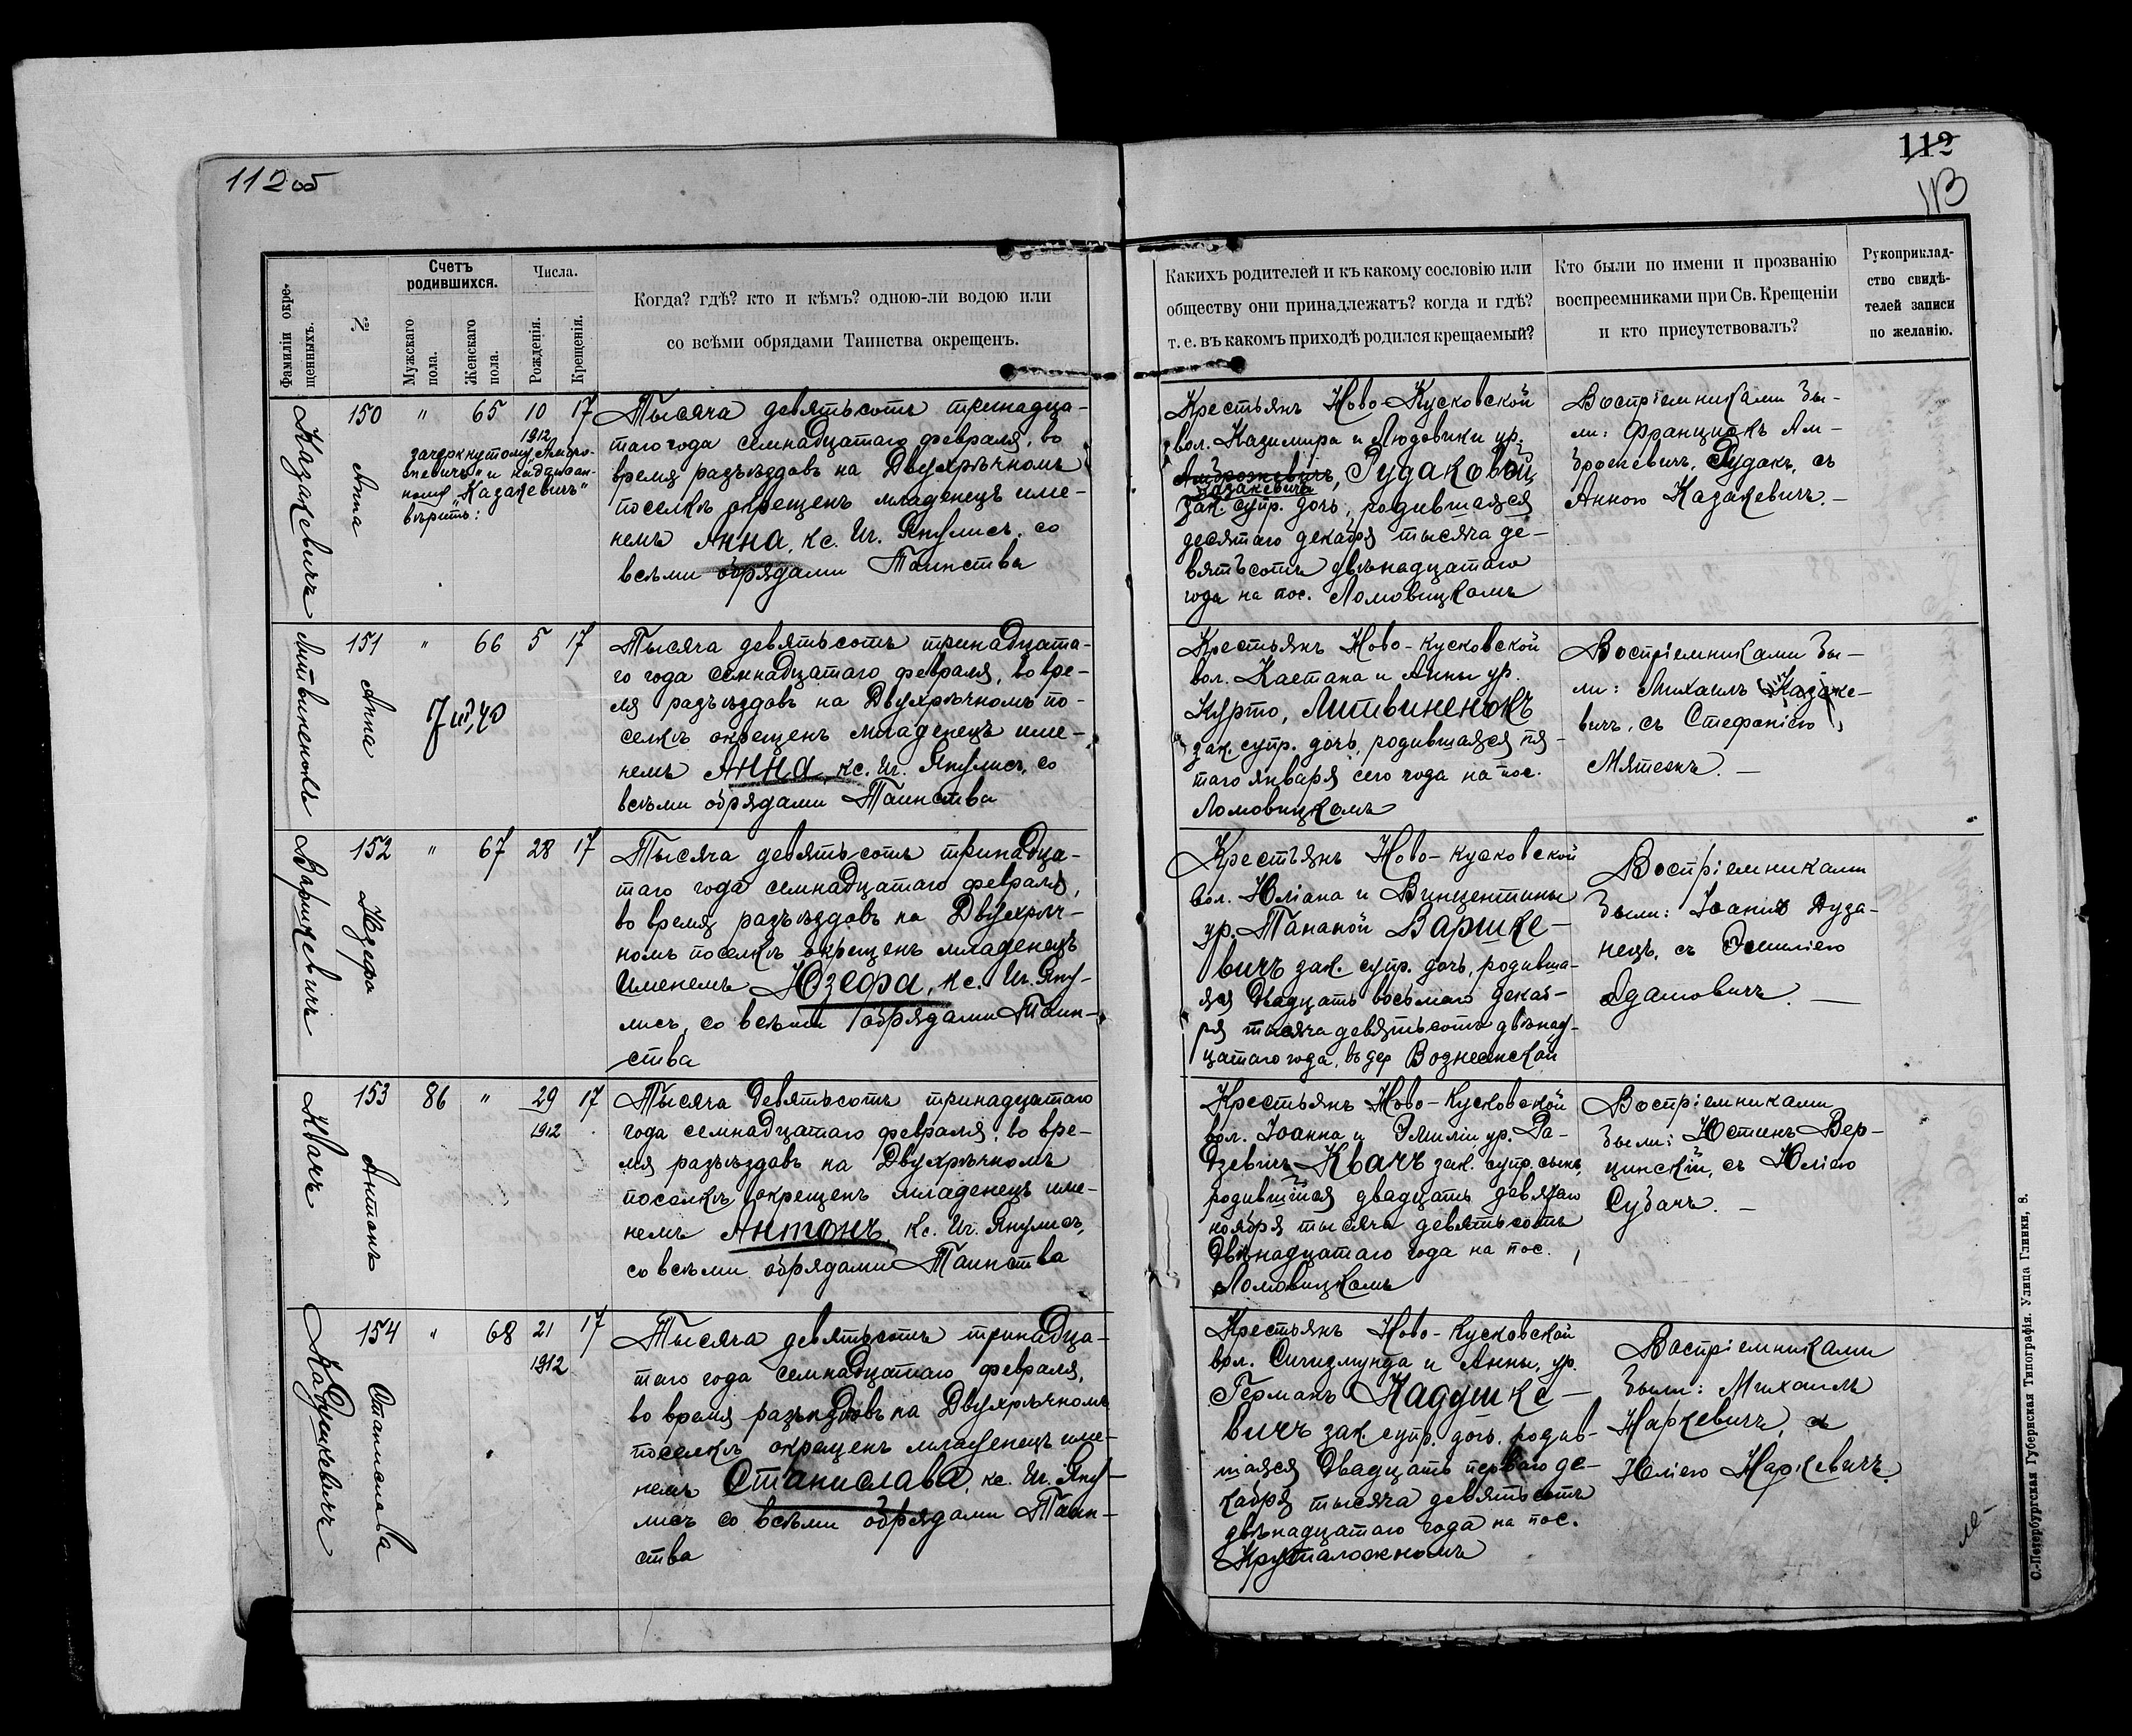 112 об
112
113
Фамиліи окре-
щенныхъ.
№
Счетъ
родившихся.
Мужскаго
пола.
Женскаго
пола.
Числа.
Рожденія.
Крещенія.
Когда? гдѣ? кто и кѣмъ? одною-ли водою или
со всѣми обрядами Таинства окрещенъ.
Какихъ родителей и къ какому сословію или
обществу они принадлежатъ? когда и гдѣ?
т. е. въ какомъ приходѣ родился крещаемый?
Кто были по имени и прозванію
воспреемниками при Св. Крещеніи
и кто присутствовалъ?
Рукоприклад-
ство свидѣ-
телей записи
по желанію.
Казакевичъ
150
Анна
"
65
10
1912
17
зачеркнутому „Амбро-
жевичъ" и надписан-
ному „Казакевичъ"
вѣрить:
Тысяча девятьсотъ тринадца-
таго года семнадцатаго февраля, во
время разъѣздовъ на Двухрѣчномъ
поселкѣ окрещенъ младенецъ име-
немъ Анна, кс. Иг. Янулисъ, со
всѣми обрядами Таинства
Крестьянъ Ново-Кусковской
вол. Казимира и Людовики ур.
Амброжевичъ, Рудаковой,
Казакевичъ
зак. супр. дочь, родившаяся
десятаго декабря тысяча де-
вятьсотъ двѣнадцатаго
года на пос. Ломовицкомъ
Воспріемниками бы-
ли: Францискъ Ам-
брожевичъ, Рудакъ, съ
Анною Казакевичъ. —
Литвиненокъ
151
Анна
"
66
5
17
7 III, 40
Тысяча девятьсотъ тринадцата-
го года семнадцатаго февраля, во вре-
мя разъѣздовъ на Двухрѣчномъ по-
селкѣ окрещенъ младенецъ име-
немъ Анна, кс. Иг. Янулисъ, со
всѣми обрядами Таинства
Крестьянъ Ново-Кусковской
вол. Каетана и Анны ур.
Курто, Литвиненокъ
зак. супр. дочь, родившаяся пя-
таго января сего года на пос.
Ломовицкомъ
Воспріемниками бы-
ли: Михаилъ Казаке-
вичъ, съ Стефаніею
Мятежъ. —
Варшкевичъ
152
Юзефа
"
67
28
17
Тысяча девятьсотъ тринадца-
таго года семнадцатаго февраля,
во время разъѣздовъ на Двухрѣч-
номъ поселкѣ окрещенъ младенецъ
именемъ Юзефа, кс. Иг. Яну-
лисъ, со всѣми обрядами Таин-
ства
Крестьянъ Ново-Кусковской
вол. Юліана и Винцентины
ур. Тананой Варшке-
вичъ зак. супр. дочь, родивша-
яся двадцать восьмаго декаб-
ря тысяча девятьсотъ двѣнад-
цатаго года, въ дер Вознесенской
Воспріемниками
были: Іоаннъ Дуза-
нецъ, съ Эмиліею
Адамовичъ. —
Квачъ
153
Антонъ
86
"
29
1912
17
Тысяча девятьсотъ тринадцатаго
года семнадцатаго февраля, во вре-
мя разъѣздовъ на Двухрѣчномъ
поселкѣ окрещенъ младенецъ име-
немъ Антонъ, кс. Иг. Янулисъ,
со всѣми обрядами Таинства
Крестьянъ Ново-Кусковской
вол. Іоанна и Эмиліи ур. Ра-
дзевичъ Квачъ зак. супр. сынъ,
родившійся двадцать девятаго
ноября тысяча девятьсотъ
двѣнадцатаго года на пос.
Ломовицкомъ
Воспріемниками
были: Юстинъ Вер-
цинскій, съ Юліею
Субачъ. —
Кадушкевичъ
154
Станислава
"
68
21
1912
17
Тысяча девятьсотъ тринадца-
таго года семнадцатаго февраля,
во время разъѣздовъ на Двухрѣчномъ
поселкѣ окрещенъ младенецъ име-
немъ Станислава, кс. Иг. Яну-
лисъ со всѣми обрядами Таин-
ства
Крестьянъ Ново-Кусковской
вол. Сигизмунда и Анны, ур.
Германъ Кадушке-
вичъ зак. супр. дочь, родив-
шаяся двадцать перваго де-
кабря тысяча девятьсотъ
двѣнадцатаго года на пос.
Крутоложномъ
Воспріемниками
были: Михаилъ
Наркевичъ, съ
Юліею Наркевичъ.
С.-Петербургская Губернская Типографія. Улица Глинки, 8.